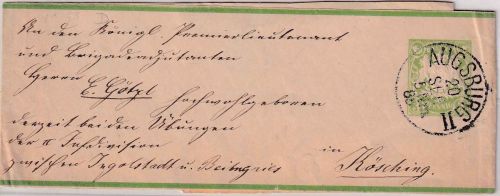 An den Königl. Premierlieutenant
und Brigadeadjutanten
Herrn E. Götzl
Hochwohlgeboren
derzeit bei den Übungen
der II Division
zwischen Ingolstadt u. Beilngries
in Kösching.
AUGSBURG II
20
SEP